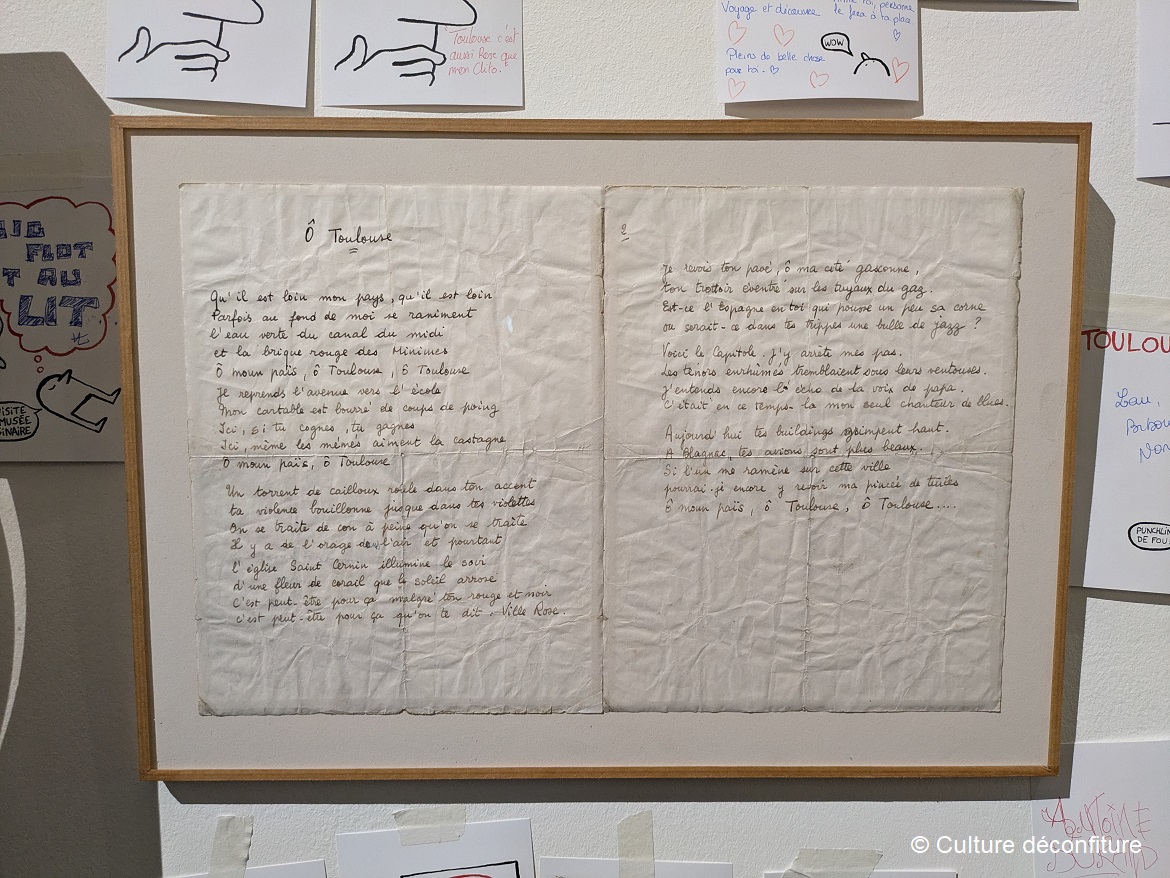 Toulouse c'est
aussi Rose que
mon Clito.
Voyage et découvre
le fera à ta place.
Pleins de belle chose
pour toi.
WOW
FLOT
T AU
LIT
VISITE
MUSÉE
GINAIRE
Ô Toulouse
Qu'il est loin mon pays, qu'il est loin
Parfois au fond de moi se raniment
l'eau verte du canal du midi
et la brique rouge des Minimes
Ô moun païs, ô Toulouse, ô Toulouse
Je reprends l'avenue vers l'école
Mon cartable est bourré de coups de poing
Ici, si tu cognes, tu gagnes
Ici, même les mémés aiment la castagne
Ô moun païs, ô Toulouse
Un torrent de cailloux roule dans ton accent
ta violence bouillonne jusque dans tes violettes
On se traite de con à peine qu'on se traite
Il y a de l'orage dans l'air et pourtant
l'église Saint Cernin illumine le soir
d'une fleur de corail que le soleil arrose
C'est peut-être pour ça malgré ton rouge et noir
c'est peut-être pour ça qu'on te dit. Ville Rose.
2
Je revois ton pavé, ô ma cité gasconne,
ton trottoir éventré sur les tuyaux du gaz.
Est-ce l'Espagne en toi qui pousse un peu sa corne
ou serait-ce dans tes trippes une bulle de jazz ?
Voici le Capitole. J'y arrête mes pas.
Les ténors enrhumés tremblaient sous leurs ventouses.
J'entends encore l'écho de la voix de papa.
C'était en ce temps-là mon seul chanteur de blues.
Aujourd'hui tes buildings grimpent haut.
A Blagnac, tes avions sont plus beaux.
Si l'un me ramène sur cette ville
pourrai-je encore y revoir ma pincée de tuiles
Ô moun païs, ô Toulouse, ô Toulouse....
TOULOU
Lau,
PUNCHLIN
DE FOU
ANTOINE
DURAND
© Culture déconfiture